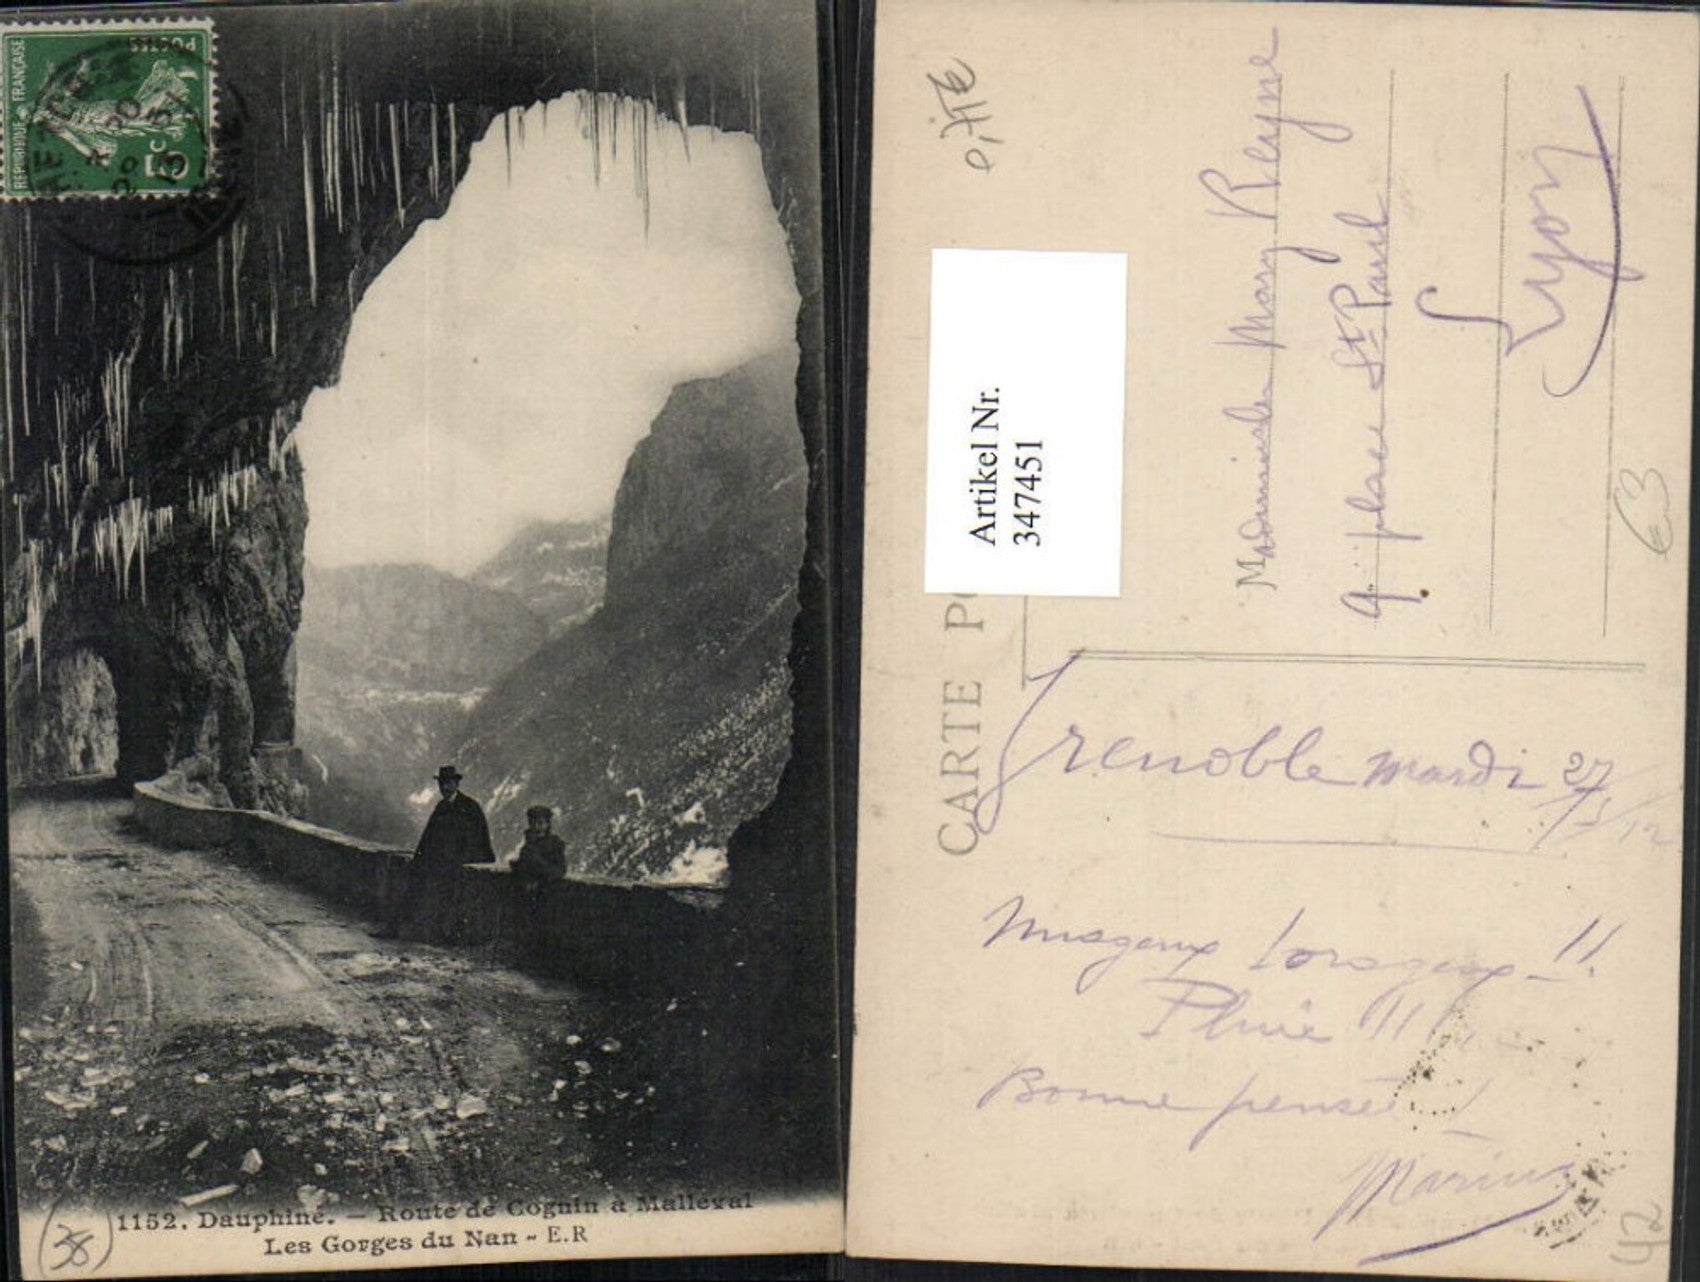 REPUBLIQUE FRANÇAISE
POSTES
5c
1152. Dauphiné. — Route de Cognin à Malleval
Les Gorges du Nan - E.R
(38)
Artikel Nr.
347451
CARTE PO
Mademoiselle Mary Reyne
9. place St Paul
Lyon
63
Grenoble mardi 27/5/12
nuageux &orageux !!
Pluie !!!
Bonne pensée !
Marius
42